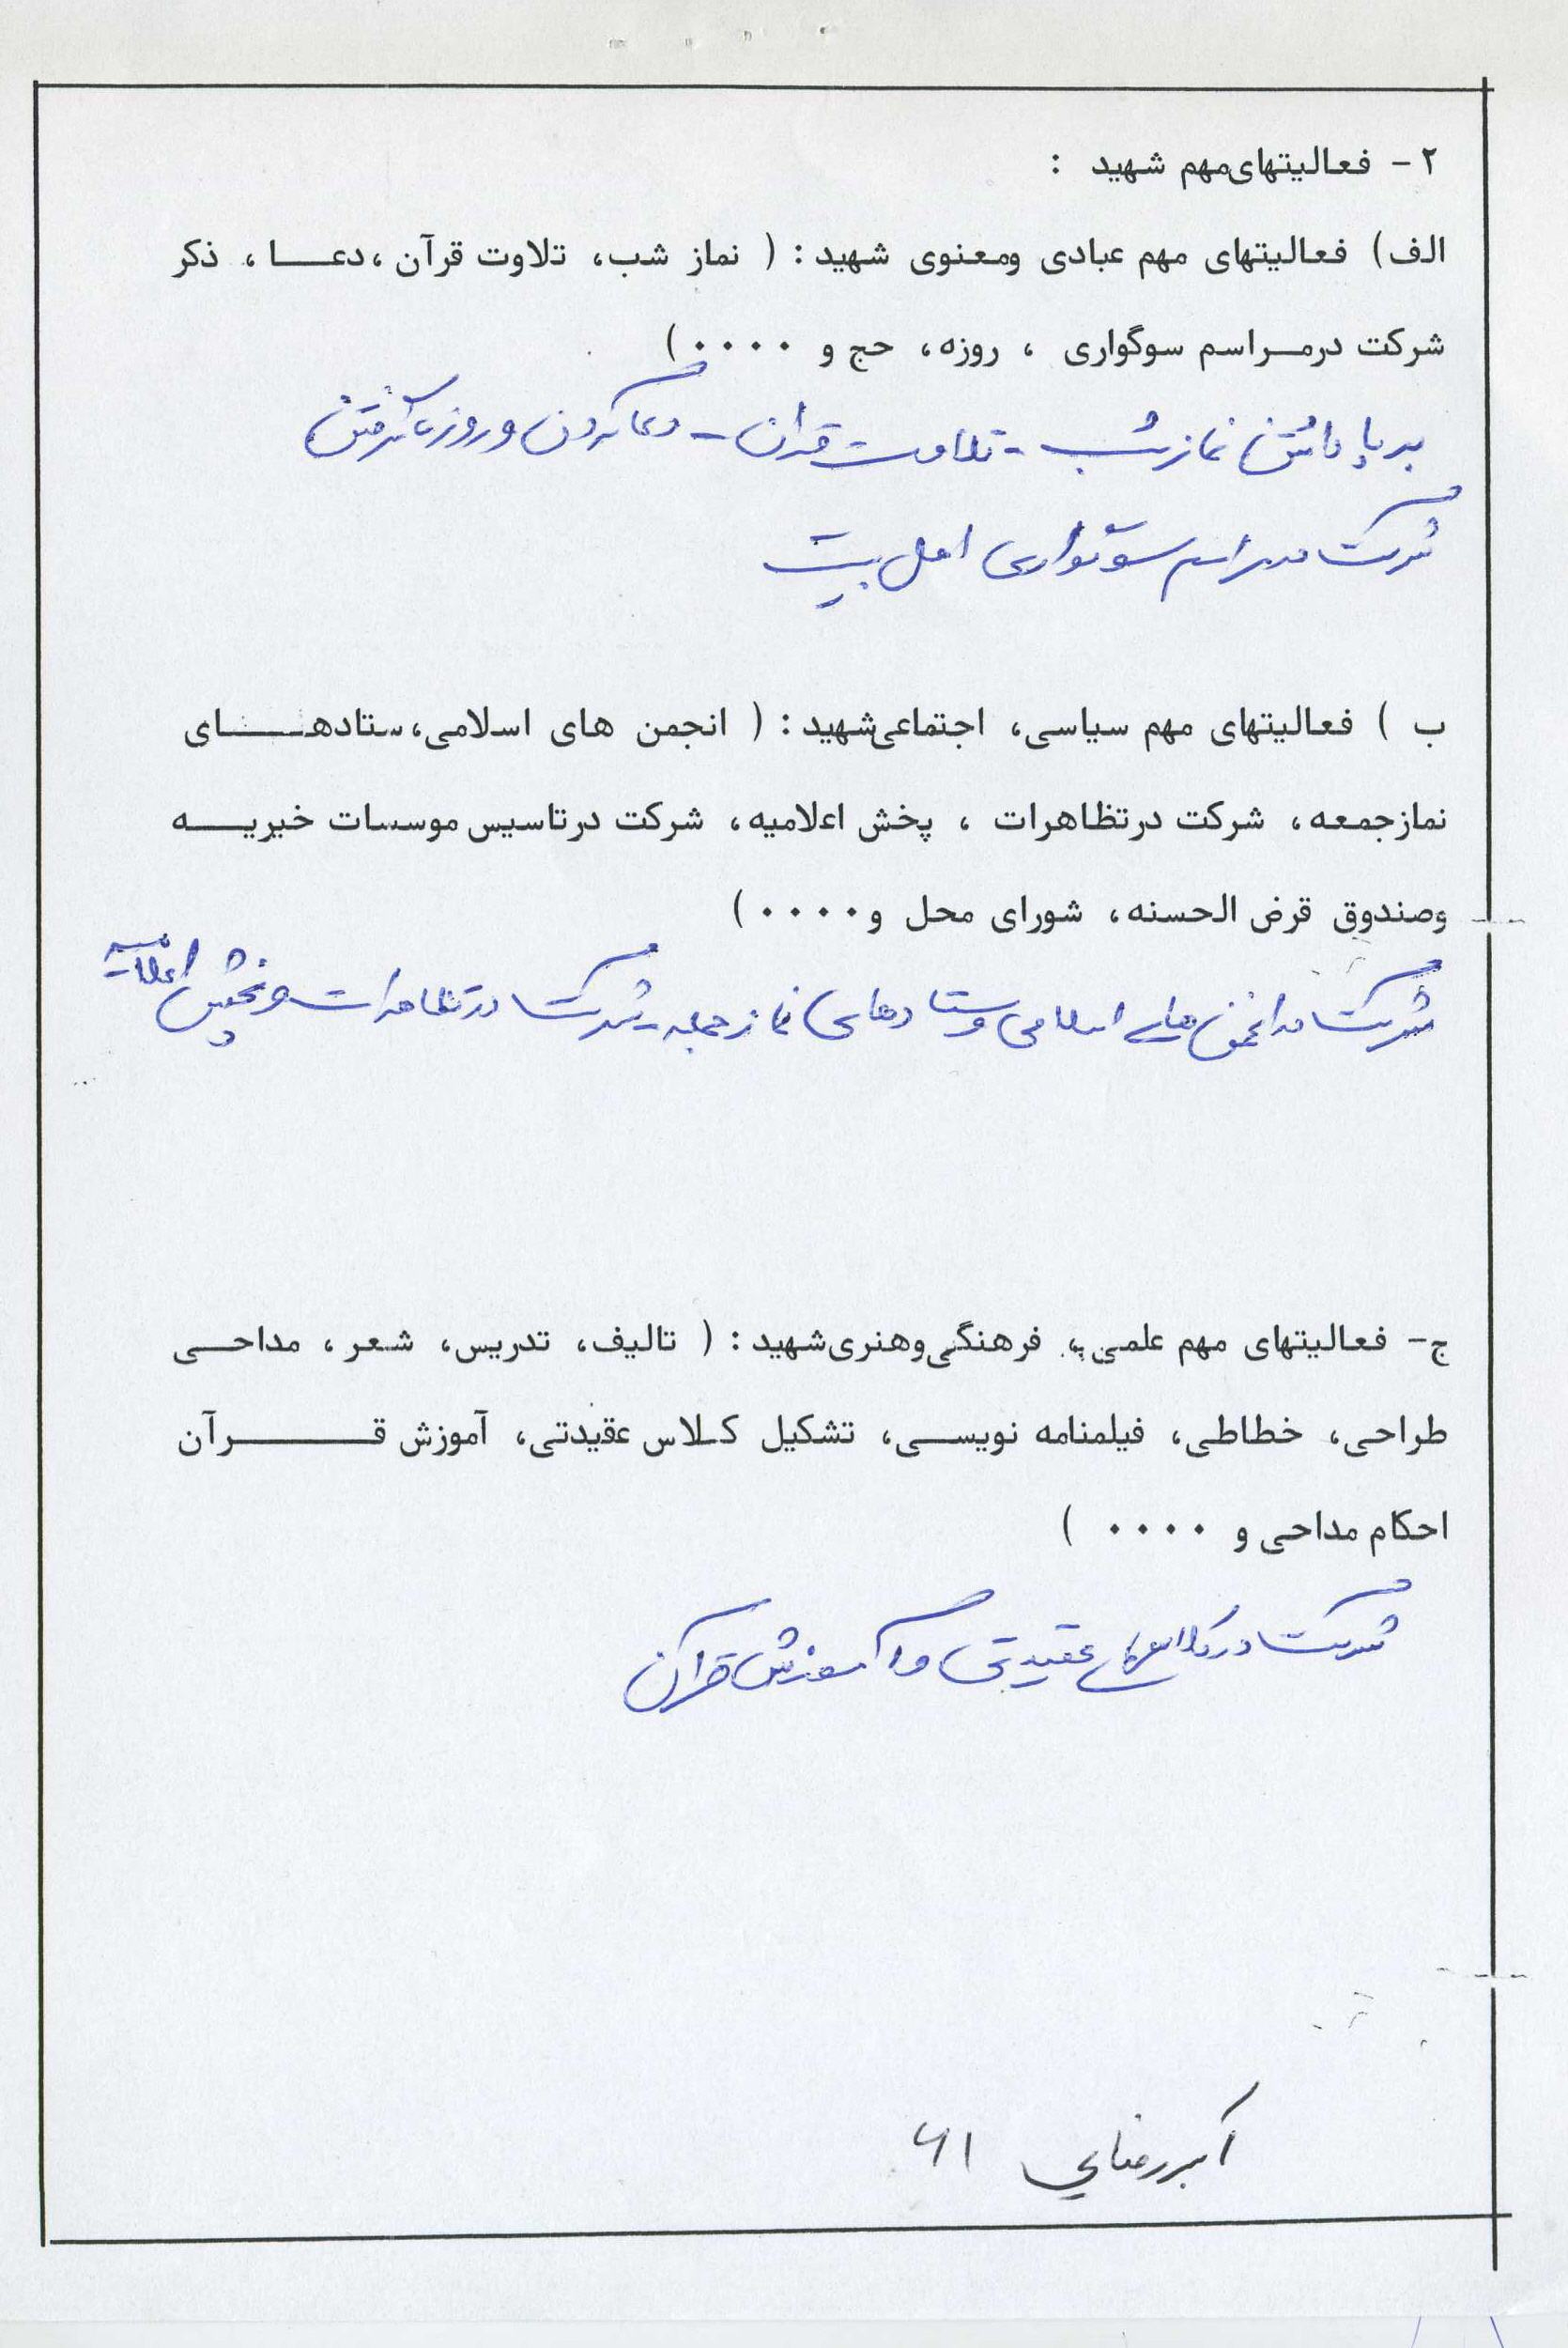 ۲ - فعالیتهای مهم شهید :
الف) فعالیتهای مهم عبادی ومعنوی شهید : ( نماز شب، تلاوت قرآن ،دعـــا ، ذکر
شرکت درمـراسم سوگواری ، روزه، حج و ۰۰۰۰)
برپا داشتن نماز شب - تلاوت قرآن - دعا کردن و روزه گرفتن
شرکت در مراسم سوگواری اهل بیت
ب ) فعالیتهای مهم سیاسی، اجتماعی شهید : ( انجمن های اسلامی، ستادهـــای
نمازجمعه، شرکت درتظاهرات ، پخش اعلامیه، شرکت درتاسیس موسسات خیریـــه
وصندوق قرض الحسنه، شورای محل و ۰۰۰۰)
شرکت در انجمن های اسلامی و ستادهای نماز جمعه - شرکت در تظاهرات و پخش اعلامیه
ج- فعالیتهای مهم علمی ، فرهنگی وهنری شهید : ( تالیف، تدریس، شعر ، مداحـی
طراحی، خطاطی، فیلمنامه نویسـی، تشکیل کلاس عقیدتی، آموزش قـــرآن
احکام مداحی و ۰۰۰۰ )
شرکت در کلاس های عقیدتی و آموزش قرآن
اکبر رضایی ۶۱